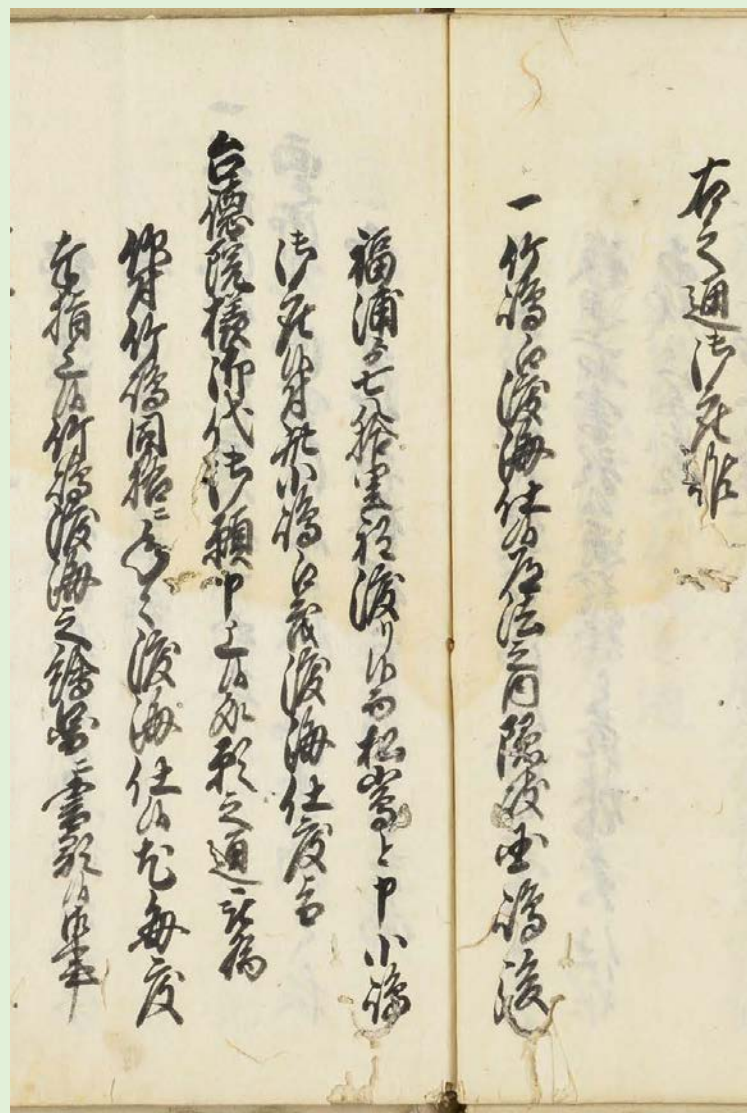 右之通御座候
一竹嶋江渡海仕候道法之内隠岐国嶋後
福浦より七八拾里程渡り候而松嶋と申小嶋
御座候付此小嶋江茂渡海仕度旨
台徳院様御代御願申上候処願之通被為
仰付竹嶋同前ニ年々渡海仕候尤毎度
差上候竹嶋渡海之絵図ニ書顕候御事